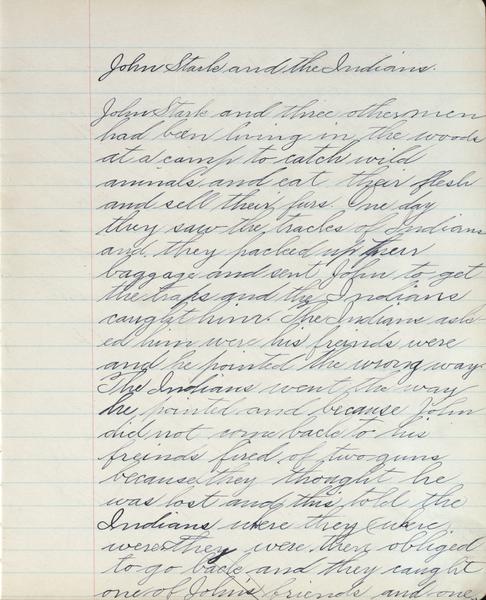 John Stark and the Indians.
John Stark and three other men
had been living in the woods
at a camp to catch wild
animals and eat their flesh
and sell their furs. One day
they saw the tracks of Indians
and they packed up their
baggage and sent John to get
the traps and the Indians
caught him. The Indians ask-
ed him were his freinds were
and he pointed the wrong way.
The Indians went the way
he pointed and because John
did not come back to his
freinds fired of two guns
because they thought he
was lost and this told the
Indians where they were
were they were then obliged
to go back and they caught
one of John's friends and one